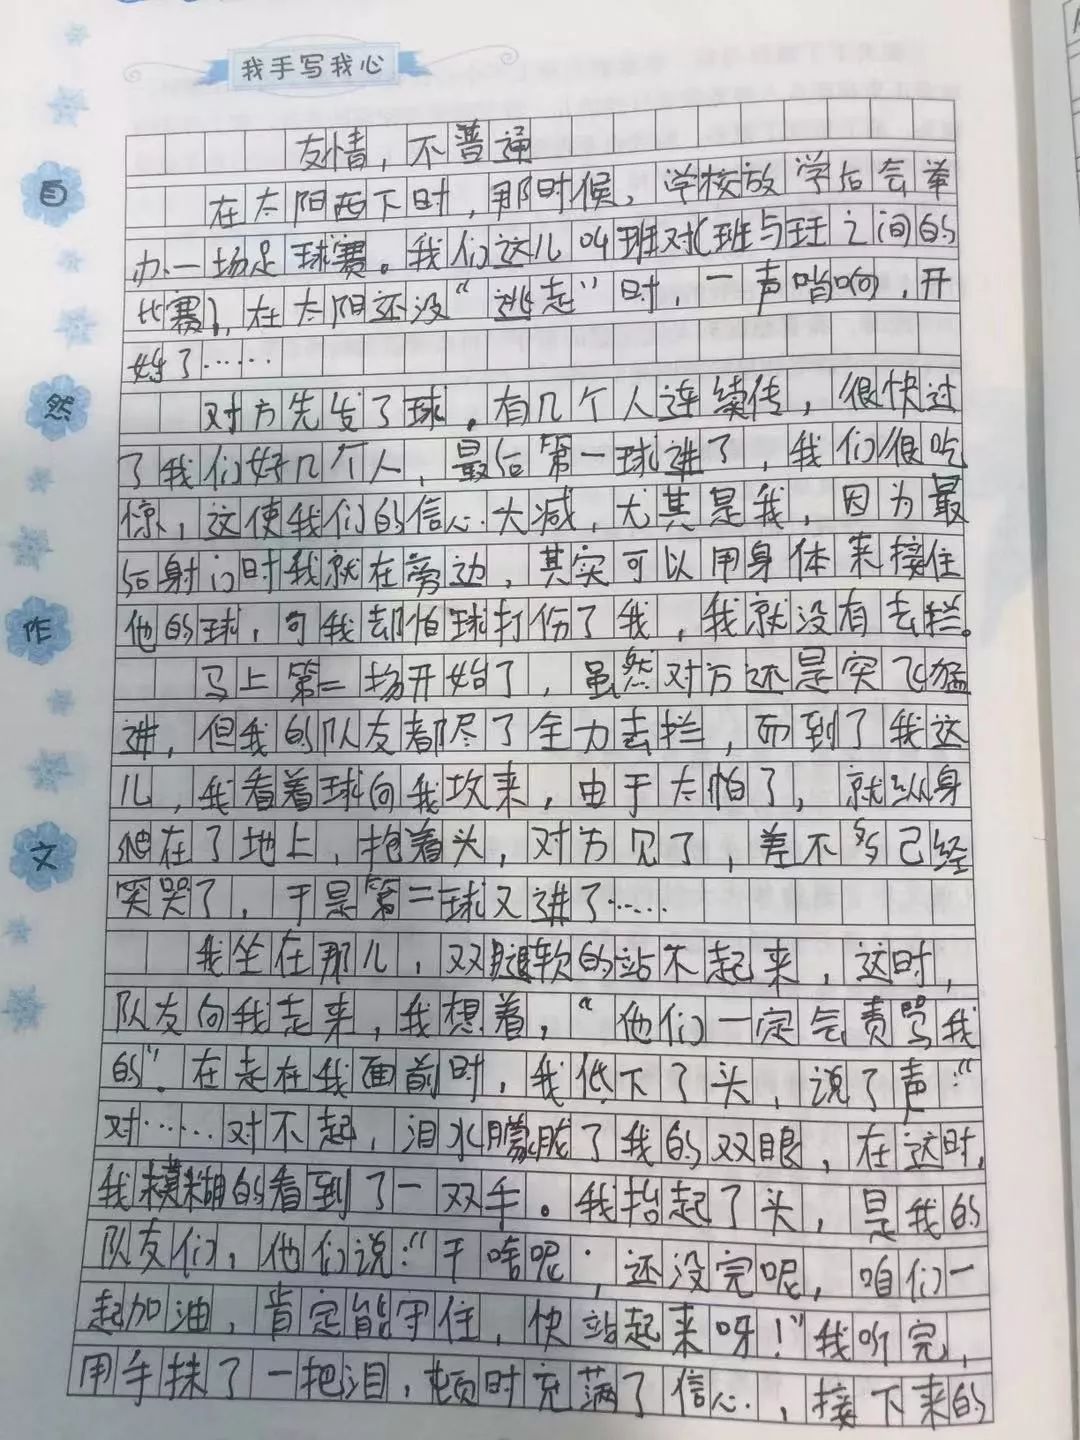 我手写我心
自
然
作
文
友情，不普通
在太阳西下时，那时候，学校放学后会举
办一场足球赛。我们这儿04班对(班与班之间的
比赛)，在太阳还没“逃走”时，一声哨响，开
始了……
对方先发了球，有几个人连续传，很快过
了我们好几个人，最后第一球进了，我们很吃
惊，这使我们的信心大减，尤其是我，因为最
后射门时我就在旁边，其实可以用身体来接住
他的球，可我却怕球打伤了我，我就没有去拦。
马上第二场开始了，虽然对方还是突飞猛
进，但我的队友都尽了全力去拦，而到了我这
儿，我看着球向我攻来，由于太怕了，就纵身
爬在了地上，抱着头，对方见了，差不多已经
笑哭了，于是第二球又进了……
我坐在那儿，双腿软的站不起来，这时，
队友向我走来，我想着，“他们一定会责骂我
的”。在走在我面前时，我低下了头，说了声：“
对……对不起，泪水朦胧了我的双眼，在这时，
我模糊的看到了一双手。我抬起了头，是我的
队友们，他们说：“干啥呢，还没完呢，咱们一
起加油，肯定能守住，快站起来呀！”我听完，
用手抹了一把泪，顿时充满了信心，接下来的